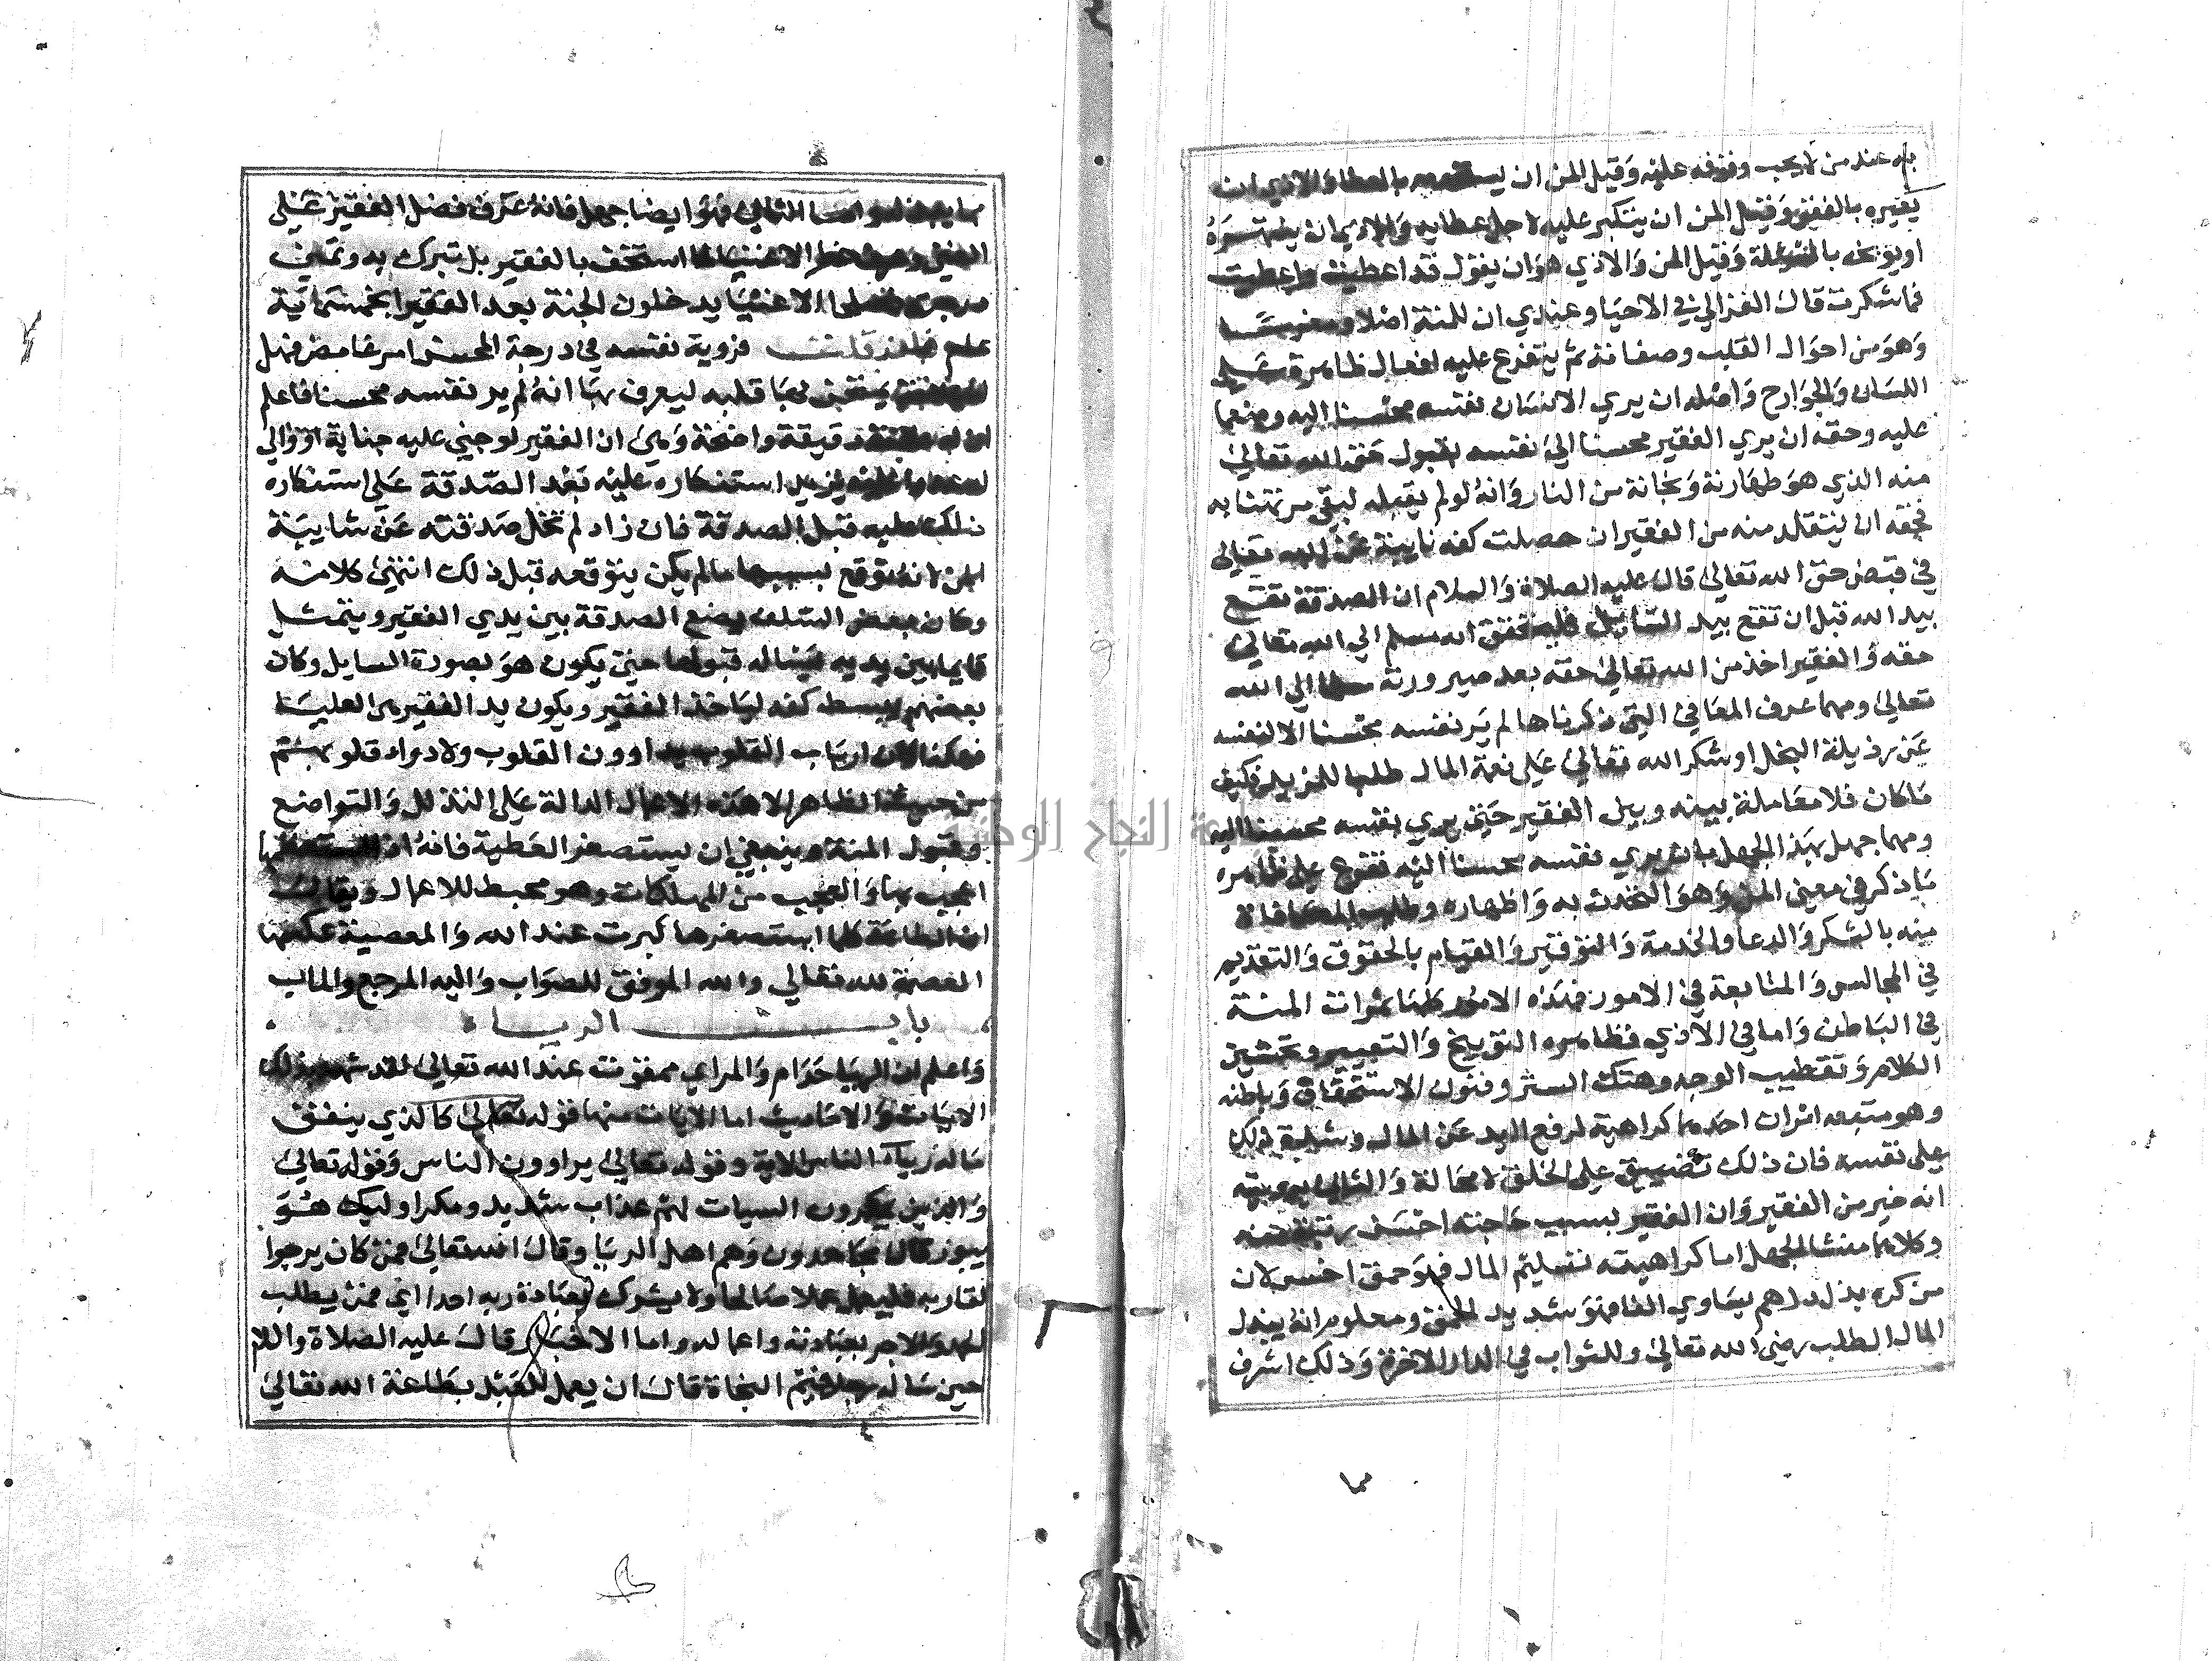 به عند من لا يجب وقوفه عليه وقيل المن ان بالعطا والاذي ان
يعيره بالفقر وقيل المن ان يتكبر عليه لاجل عطايه والاذي ان ينتهره
او يوبخه بالمسئلة وقيل المن والاذي هو ان يقول قد اعطيتك واعطيت
فما شكرت قال الغزالي في الاحيا وعندي ان للمنة اصلا ومغرسا
وهو من احوال القلب وصفاته ثم يتفرع عليه افعال ظاهرة علي
اللسان والجوارح واصله ان يري الانسان نفسه محسنا اليه ومنعما
عليه وحقه ان يري الفقير محسنا الي نفسه بقبول حق الله تعالي
منه الذي هو طهارته ونجاته من النار وانه لو لم يقبله لبقي مرتهنا به
فحقه ان يتقلد منه من الفقير ان حصلت كفه نايبة عن الله تعالي
في قبض حق الله تعالي قال عليه الصلاة والسلام ان الصدقة تقع
بيد الله قبل ان تقع بيد السايل فليتحقق انه مسلم الي الله تعالي
حقه والفقير اخذ من الله تعالي حقه بعد صيرورته الي الله
تعالي ومهما عرف المعاني التي ذكرناها لم ير نفسه محسنا الا لنفسه
عن رذيلة البخل او شكر الله تعالي علي نعمة المال طلبا للمزيد وكيف
ما كان فلا معاملة بينه وبين الفقير حتي يري نفسه محسنا اليه
ومهما جهل بهذا الجهل بان يري نفسه محسنا اليه تفرع علي ظاهره
ما ذكر في معني المن وهو التحدث به واظهاره وطلب المكافاة
منه بالشكر والدعا والخدمة والتوقير والقيام بالحقوق والتقديم
في المجالس والمتابعة في الامور فهذه الامور كلها ثمرات المنة
في الباطن واما في الاذي فظاهره التوبيخ والتعيير وتخشين
الكلام وتقطيب الوجه وهتك الستر وفنون الاستخفاف وباطنه
وهو منبعه امران احدهما كراهية لرفع اليد عن المال وشدة ذلك
علي نفسه فان ذلك تضييق علي الخلق لا محالة والثاني رويته
انه خير من الفقير وان الفقير بسبب حاجته اخس رتبة منه
وكلاهما منشا الجهل اما كراهيته تسليم المال فهو حمق اخس لان
من كره بذل دراهم يساوي الفا فهو شديد الحمق ومعلوم انه يبذل
المال لطلب رضي الله تعالي وللثواب في الدار الاخرة وذلك اشرف
مما
مما الثاني فهو ايضا جهل فانه عرف فضل الفقير علي
الغني خطر الاغنيا لما استخف بالفقير بل تبرك به وتمني
الاغنيا يدخلون الجنة بعد الفقرا بخمسماية
عام فان قلت فروية نفسه في درجة المحسن امر غامض فهل
يمتحن بها قلبه ليعرف بها انه لم ير نفسه محسنا فاعلم
ان له دقيقة واضحة وهي ان الفقير لو جني عليه جناية او والي
يزيد استنكاره عليه بعد الصدقة علي استنكاره
ذلك عليه قبل الصدقة فان زاد لم تخل صدقته عن شايبة
المن لانه توقع بسببها ما لم يكن يتوقعه قبل ذلك انتهي كلامه
وكان بعض السلف يضع الصدقة بين يدي الفقير ويتمثل
قايما بين يديه يساله قبولها حتي يكون هو بصورة السايل وكان
بعضهم يبسط كفه لياخذ الفقير ويكون يد الفقير هي العليا
فهكذا كان ارباب القلوب يداوون القلوب ولا دوا قلوبهم
من حيث الظاهر الا هذه الاعمال الدالة علي التذلل والتواضع
وقبول المنة وينبغي ان يستصغر العطية فانه اذا استعظمها
اعجب بها والعجب من المهلكات وهو محبط للاعمال ويقال
ان الطاعة كلما استصغرها كبرت عند الله والمعصية عكسها
العصمة لله تعالي والله الموفق للصواب واليه المرجع والماب
باب الريا
واعلم ان الريا حرام والمراي ممقوت عند الله تعالي لقد شهد بذلك
الايات والاحاديث اما الايات منها قوله تعالي كالذي ينفق
ماله رياء الناس الاية وقوله تعالي يراوون الناس وقوله تعالي
والذين يمكرون السيات لهم عذاب شديد ومكر اوليك هو
يبور قال مجاهد ون وهم اهل الريا وقال الله تعالي فمن كان يرجوا
لقا ربه فليعمل عملا صالحا ولا يشرك بعبادة ربه احدا اي فمن يطلب
الحمد والاجر بعبادته واعماله واما الاخبار قال عليه الصلاة والسلا
حين ساله رجل فيم النجاة قال ان يعمل العبد بطاعة الله تعالي
جامعة النجاح الوطنية